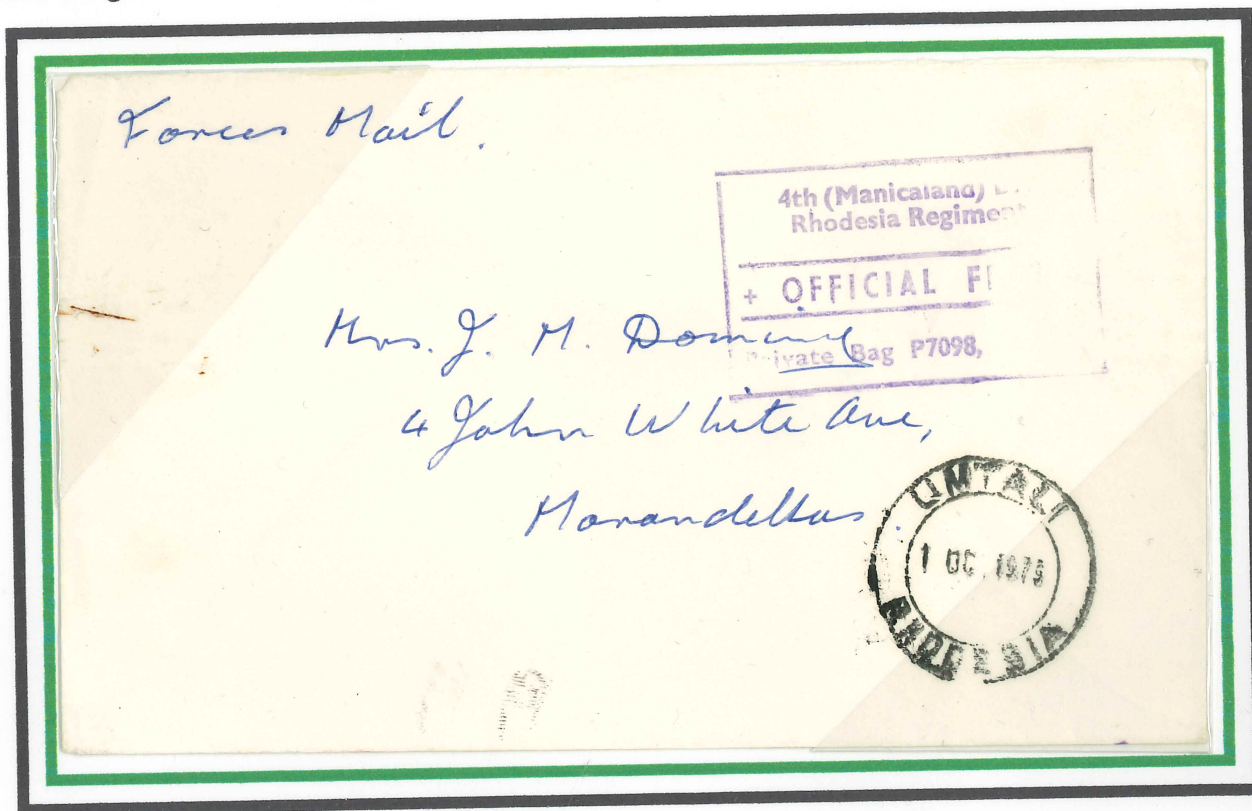 Forces Mail.
4th (Manicaland)
Rhodesia Regiment
+ OFFICIAL
Mrs. J. M.
Private Bag P7098,
4 John White Ave,
Marandellas.
UMTALI
1 OC 1979
RHODESIA